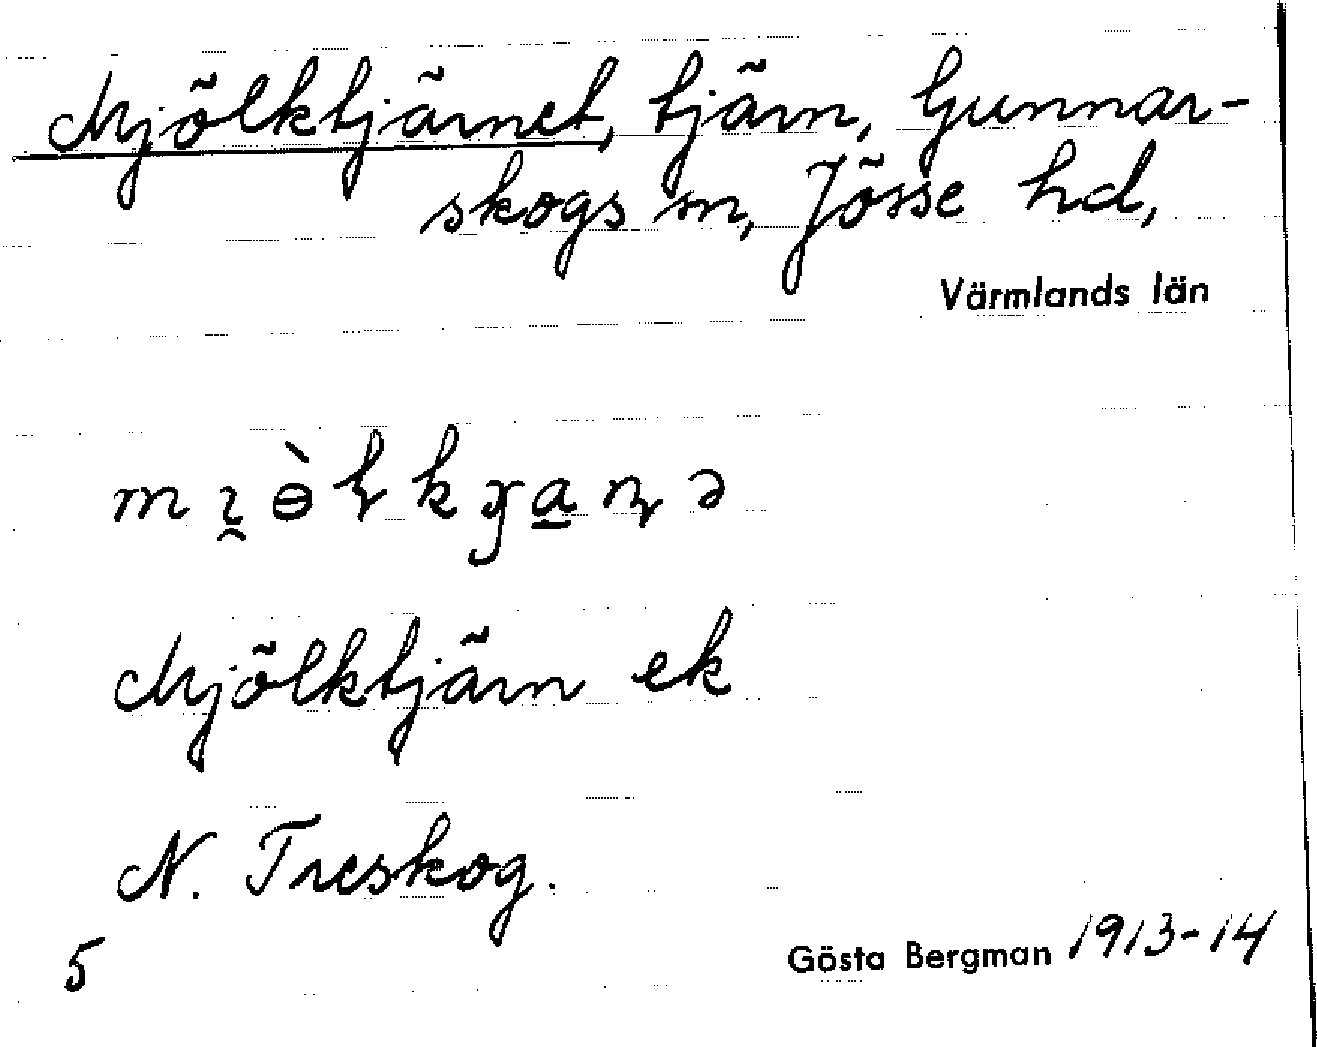 Mjölktjärnet, tjärn, Gunnar-
skogs sn, Jösse hd,
Värmlands län
Mjölktjärn ek
N. Treskog.
5
Gösta Bergman 1913-14